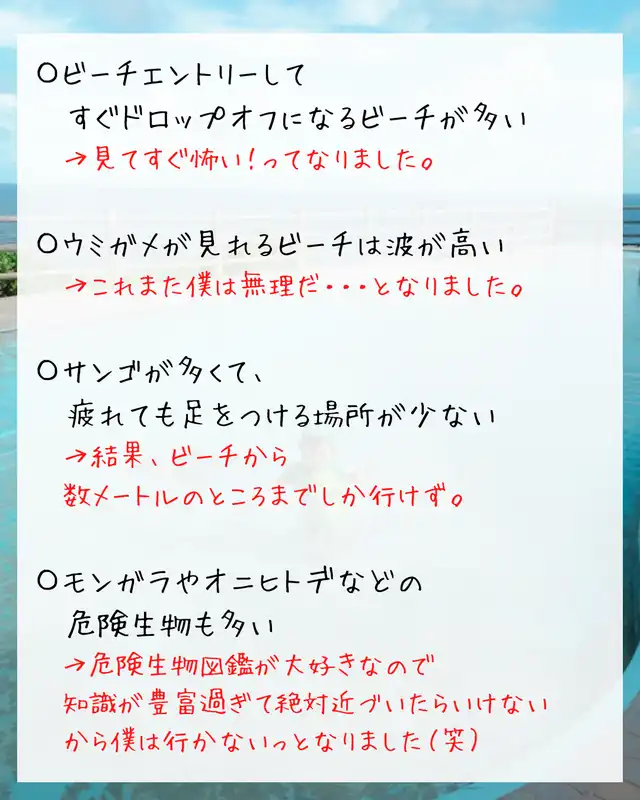 ○ビーチエントリーして
すぐドロップオフになるビーチが多い
→見てすぐ怖い!ってなりました。
○ウミガメが見れるビーチは波が高い
→これまた僕は無理だ・・・となりました。
○サンゴが多くて、
疲れても足をつける場所が少ない
→結果、ビーチから
数メートルのところまでしか行けず。
○モンガラやオニヒトデなどの
危険生物も多い
→危険生物図鑑が大好きなので
知識が豊富過ぎて絶対近づいたらいけない
から僕は行かないっとなりました(笑)